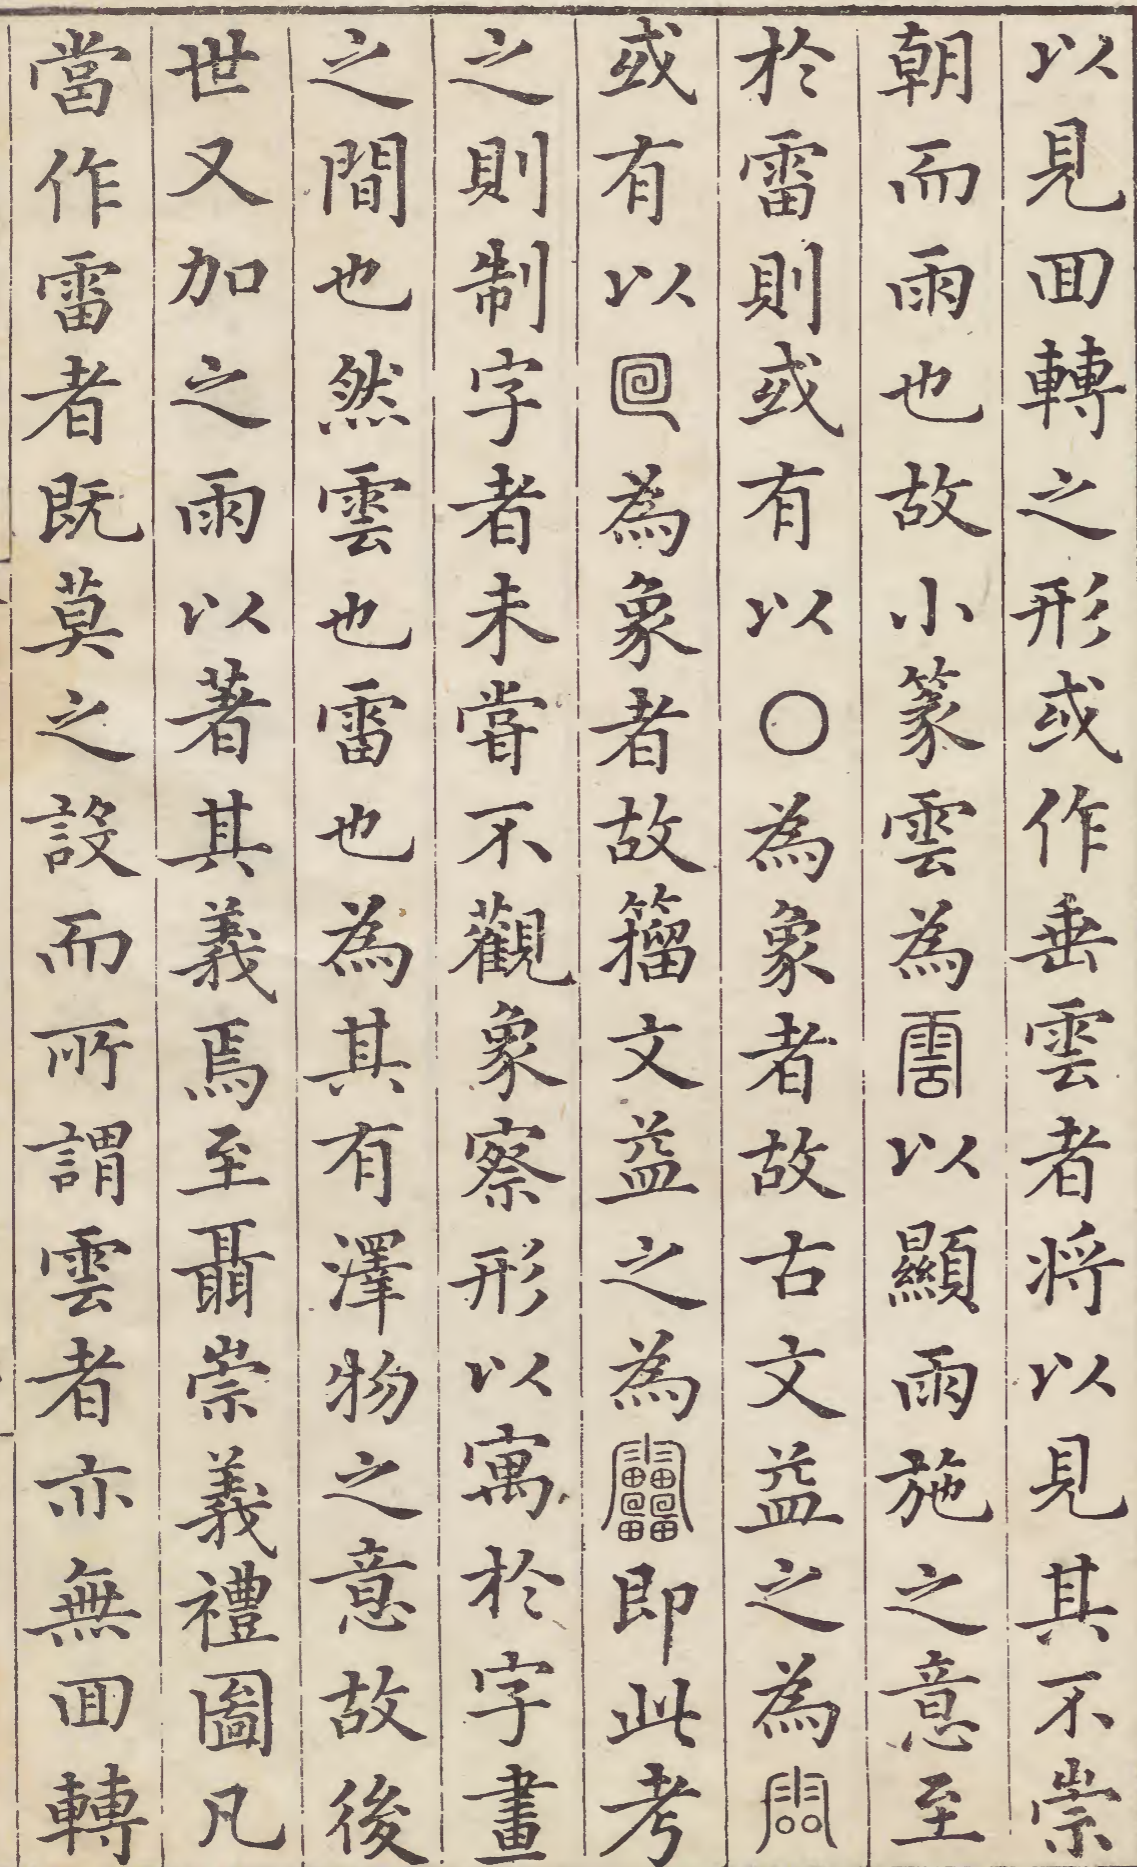 以見囬轉之形或作垂雲者将以見其不崇
朝而雨也故小篆雲為以顯雨施之意至
於雷則或有以〇為象者故古文益之為
或有以為象者故籀文益之為即此考
之則制字者未嘗不觀象察形以寓於字畫
之間也然雲也雷也為其有澤物之意故後
世又加之雨以著其義焉至聶崇義禮圖凡
當作雷者既莫之設而所謂雲者亦無囬轉